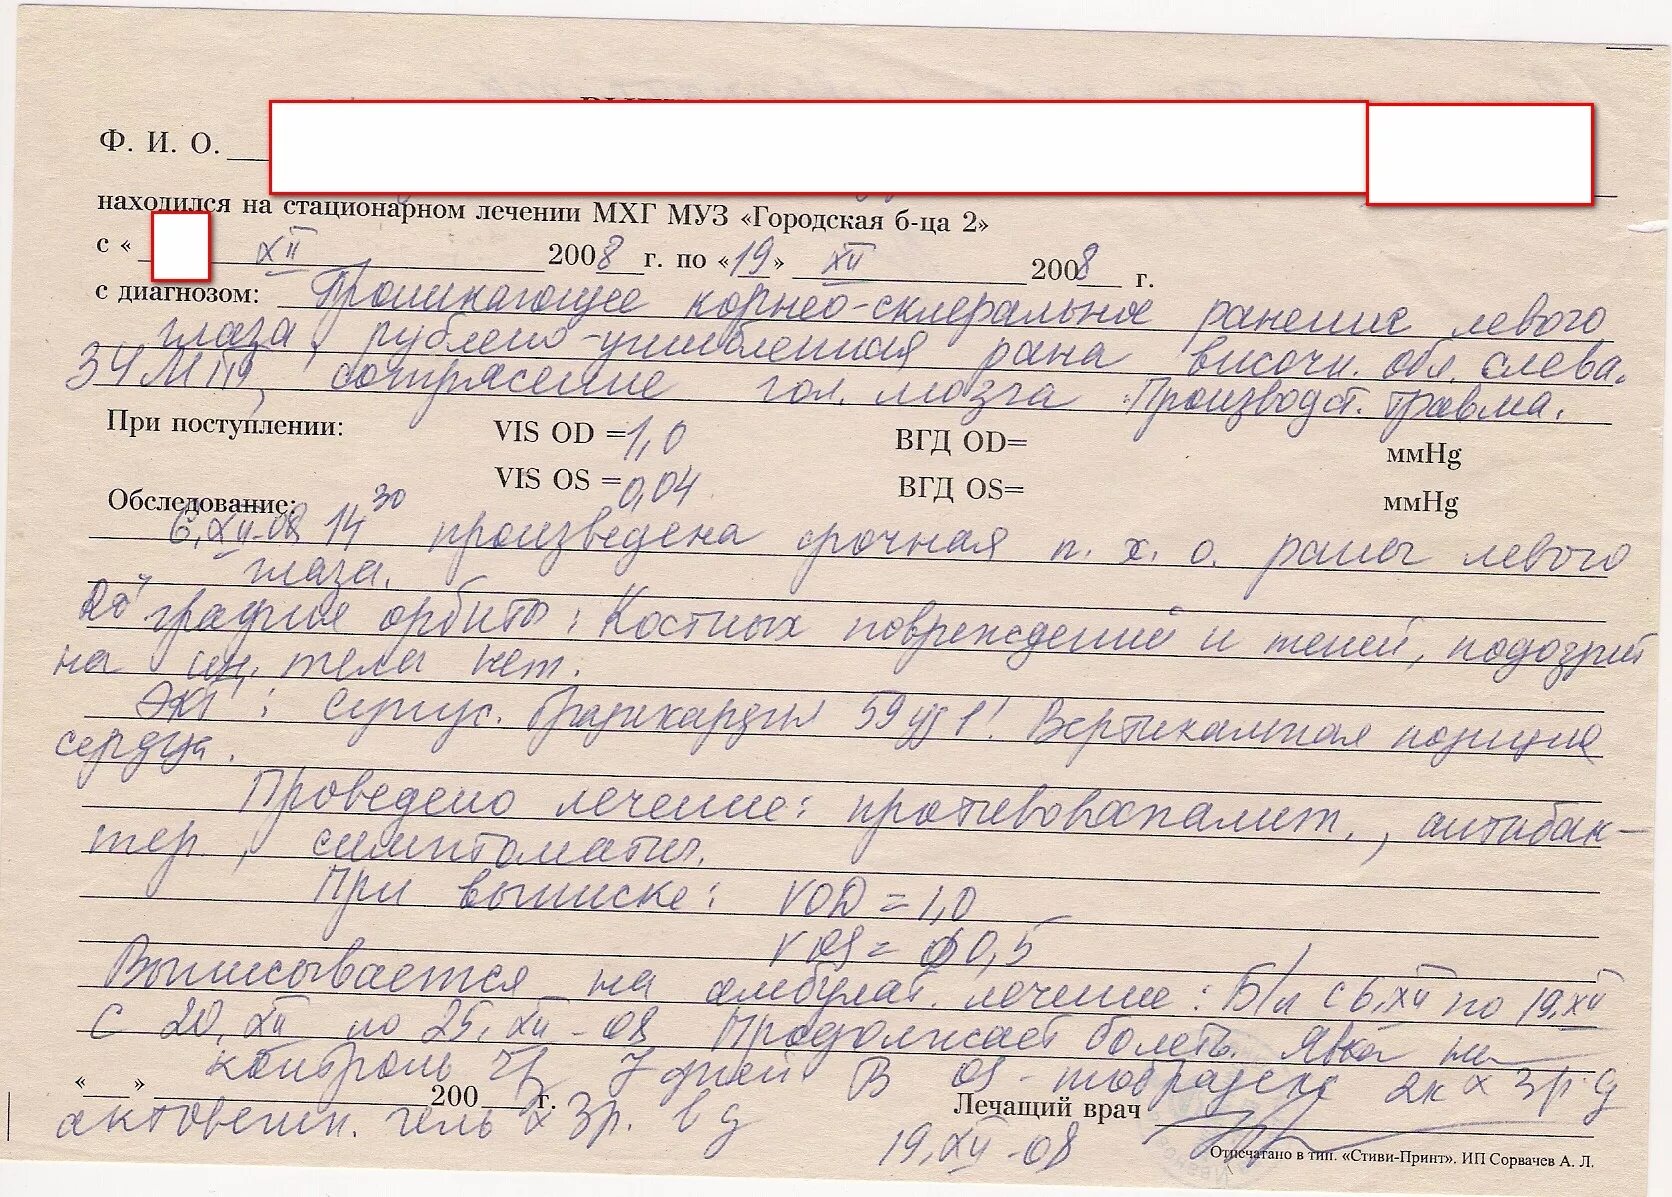 Ф. И. О.
находился на стационарном лечении МХГ МУЗ «Городская б-ца 2»
с « XII 2008 г. по «19» XII 2008 г.
с диагнозом: Проникающее корнео-склеральное ранение левого
глаза, рублено-ушибленная рана височн. обл. слева.
ЗЧМТ, сотрясение гол. мозга. Производст. травма.
При поступлении: VIS OD = 1,0 ВГД OD= ммHg
VIS OS = 0,04 ВГД OS= ммHg
Обследование:
6.XII-08 14 30 произведена срочная п. х. о. раны левого
глаза.
графия орбиты: Костных повреждений и теней, подозрит
на ин. тела нет.
ЭКГ: Синус. брадикардия 59 уд 1'. Вертикальная позиция
сердца.
Проведено лечение: противовоспалит., антибак-
тер., симптоматич.
При выписке: VOD = 1,0
VOS = 0,5
Выписывается на амбулат. лечение: Б/л с 6.XII по 19.XII
С 20.XII по 25.XII-08 Продолжает болеть. Явка на
контроль ч/з 7 дней В OS - тобрадекс 2к х 3 р. д
« » 200 г. Лечащий врач
актовегин. гель х 3 р. в д
19.XII-08
Отпечатано в тип. «Стиви-Принт». ИП Сорвачев А. Л.